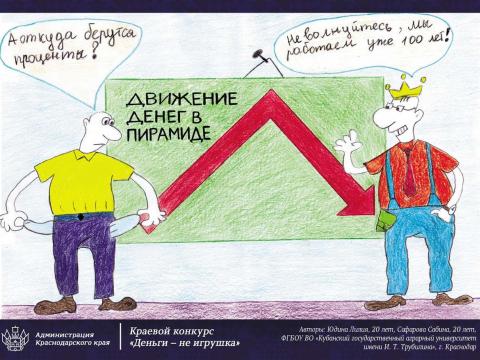 А откуда берутся
проценты?
Не волнуйтесь, мы
работаем уже 100 лет!
ДВИЖЕНИЕ
ДЕНЕГ В
ПИРАМИДЕ
Администрация
Краснодарского края
Краевой конкурс
«Деньги – не игрушка»
Авторы: Юдина Лилия, 20 лет, Сафарова Сабина, 20 лет,
ФГБОУ ВО «Кубанский государственный аграрный университет
имени И. Т. Трубилина», г. Краснодар